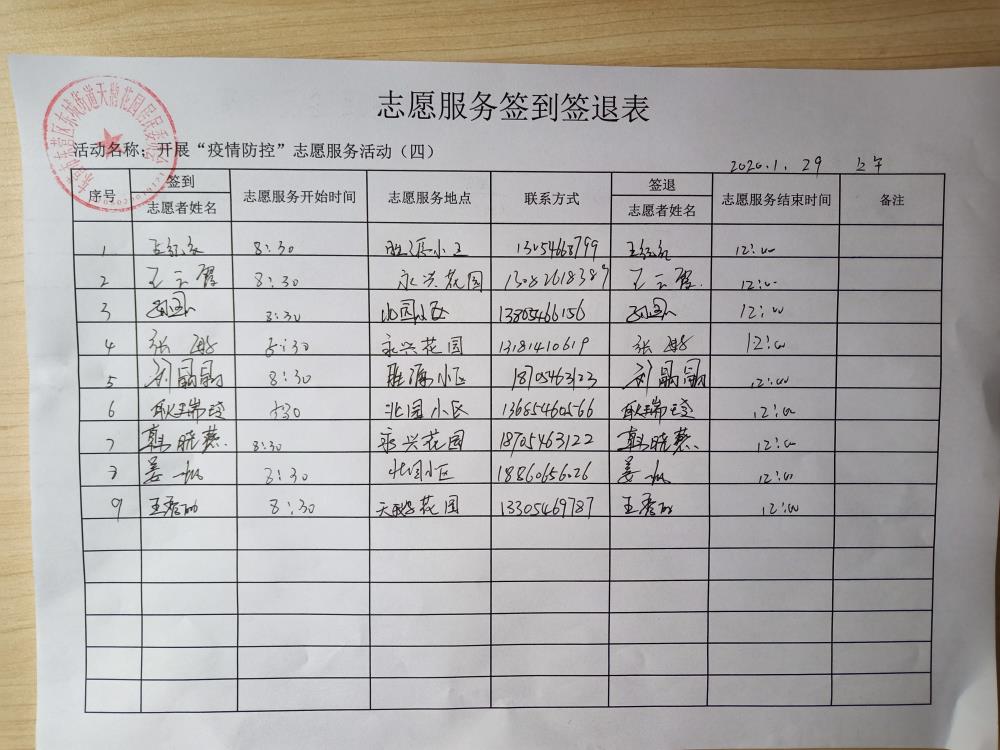 志愿服务签到签退表
活动名称：开展“疫情防控”志愿服务活动（四）
2020.1.29 上午
序号 签到 志愿服务开始时间 志愿服务地点 联系方式 签退 志愿服务结束时间 备注
志愿者姓名 志愿者姓名
1 8:30 胜源小区 12:00
2 王云霞 8:30 永兴花园 王云霞 12:00
3 8:30 北园小区 13805466156 12:00
4 张 8:30 永兴花园 13181410619 张 12:00
5 刘 8:30 胜源小区 18705463123 刘 12:00
6 耿瑞 8:30 北园小区 13685460566 耿瑞 12:00
7 韩晓慧 8:30 永兴花园 18705463122 韩晓慧 12:00
8 姜 8:30 北园小区 18860656026 姜 12:00
9 王秀 8:30 天鹅花园 13305469787 王秀 12:00